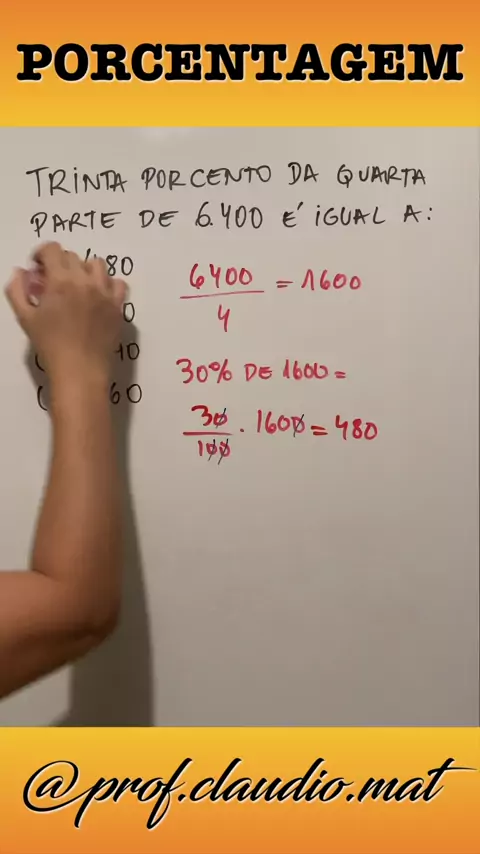 PORCENTAGEM
TRINTA PORCENTO DA QUARTA
PARTE DE 6.400 É IGUAL A:
6400 = 1600
4
30% DE 1600 =
30 . 1600 = 480
100
@prof.claudio.mat